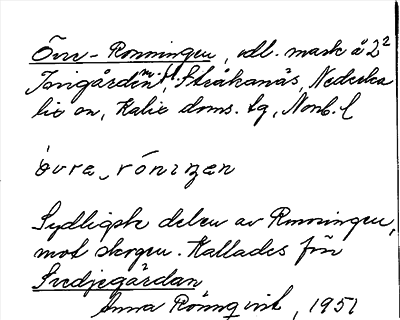 Övre-Rönningen, odl. mark å 2²
Torigården m.fl. Stråkanäs, Nederka
lix sn, Kalix doms. tg, Nonb. l
òvra‿róniŋen
Sydligste delen av Rönningen,
mot skogen. Kallades för
Svedjegårdan
Anna Rönnqvist, 1951